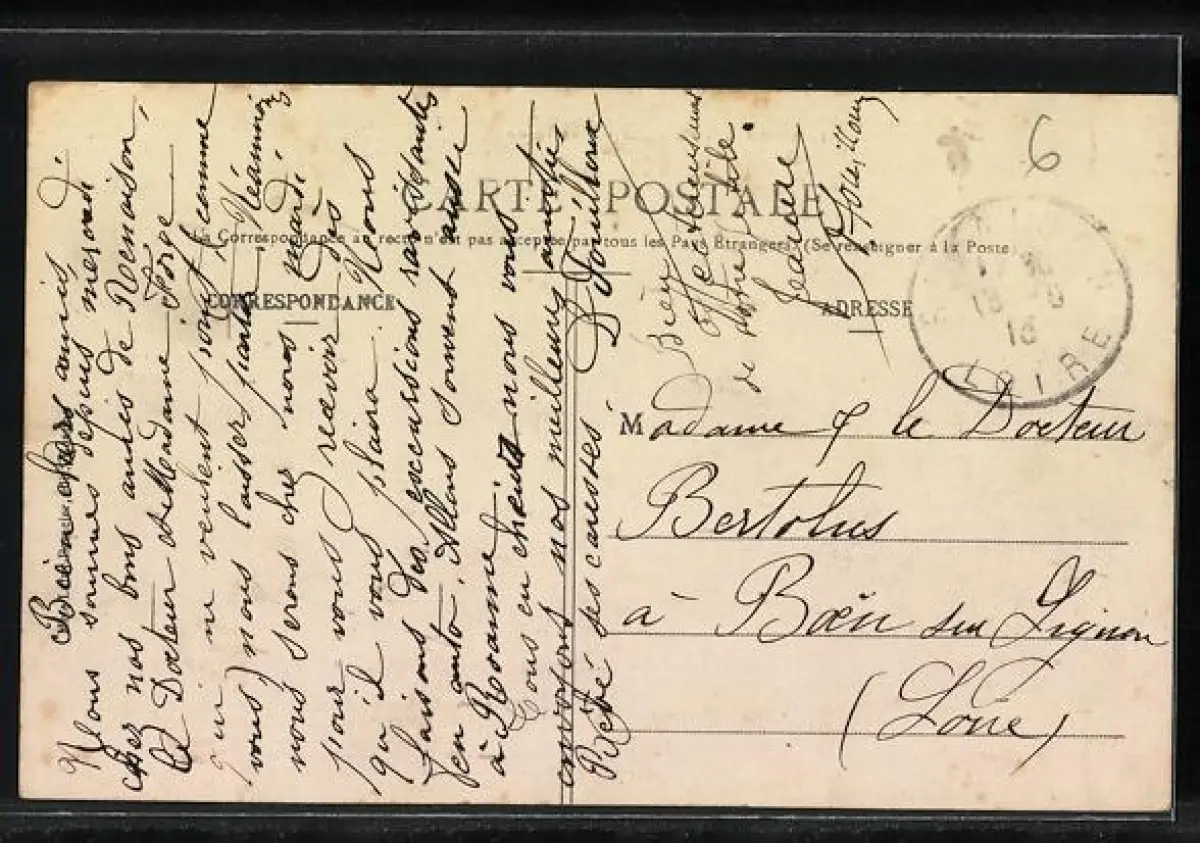 CARTE POSTALE
La Correspondance au recto n'est pas acceptée par tous les Pays Étrangers. (Se renseigner à la Poste)
CORRESPONDANCE
ADRESSE
6
LOIRE
Bien chers amies,
Nous sommes depuis mercredi
chez nos bons amies de Renaison,
Le Docteur et Madame Forge
qui ne veulent pas (comme
vous) nous laisser partir. Néanmoins
nous serons chez nous mardi
pour vous recevoir dès
qu'il vous plaira. Nous
faisons des excursions ravissantes
en auto. Allons souvent aussi
à Roanne
Tous en chœur nous vous
envoyons nos meilleures amitiés
Bébé ses caresses
Bien affectueusement
de votre
Jeanne
Madame & le Docteur
Bertolus
à Boën sur Lignon
(Loire)